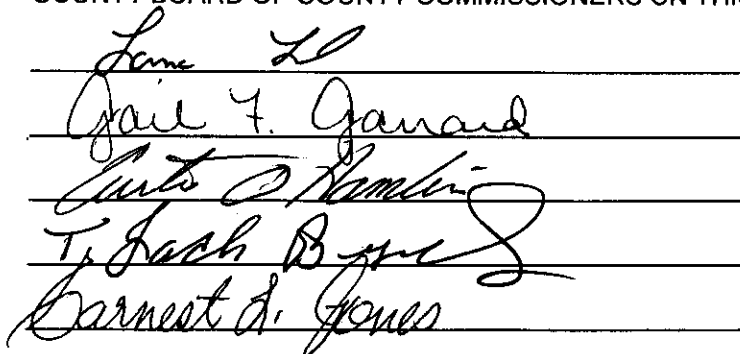 COUNTY BOARD OF COUNTY COMMISSIONERS ON THI
Gail F. Garrard
Curtis D Hamlin
T. Zach
Earnest L. Jones